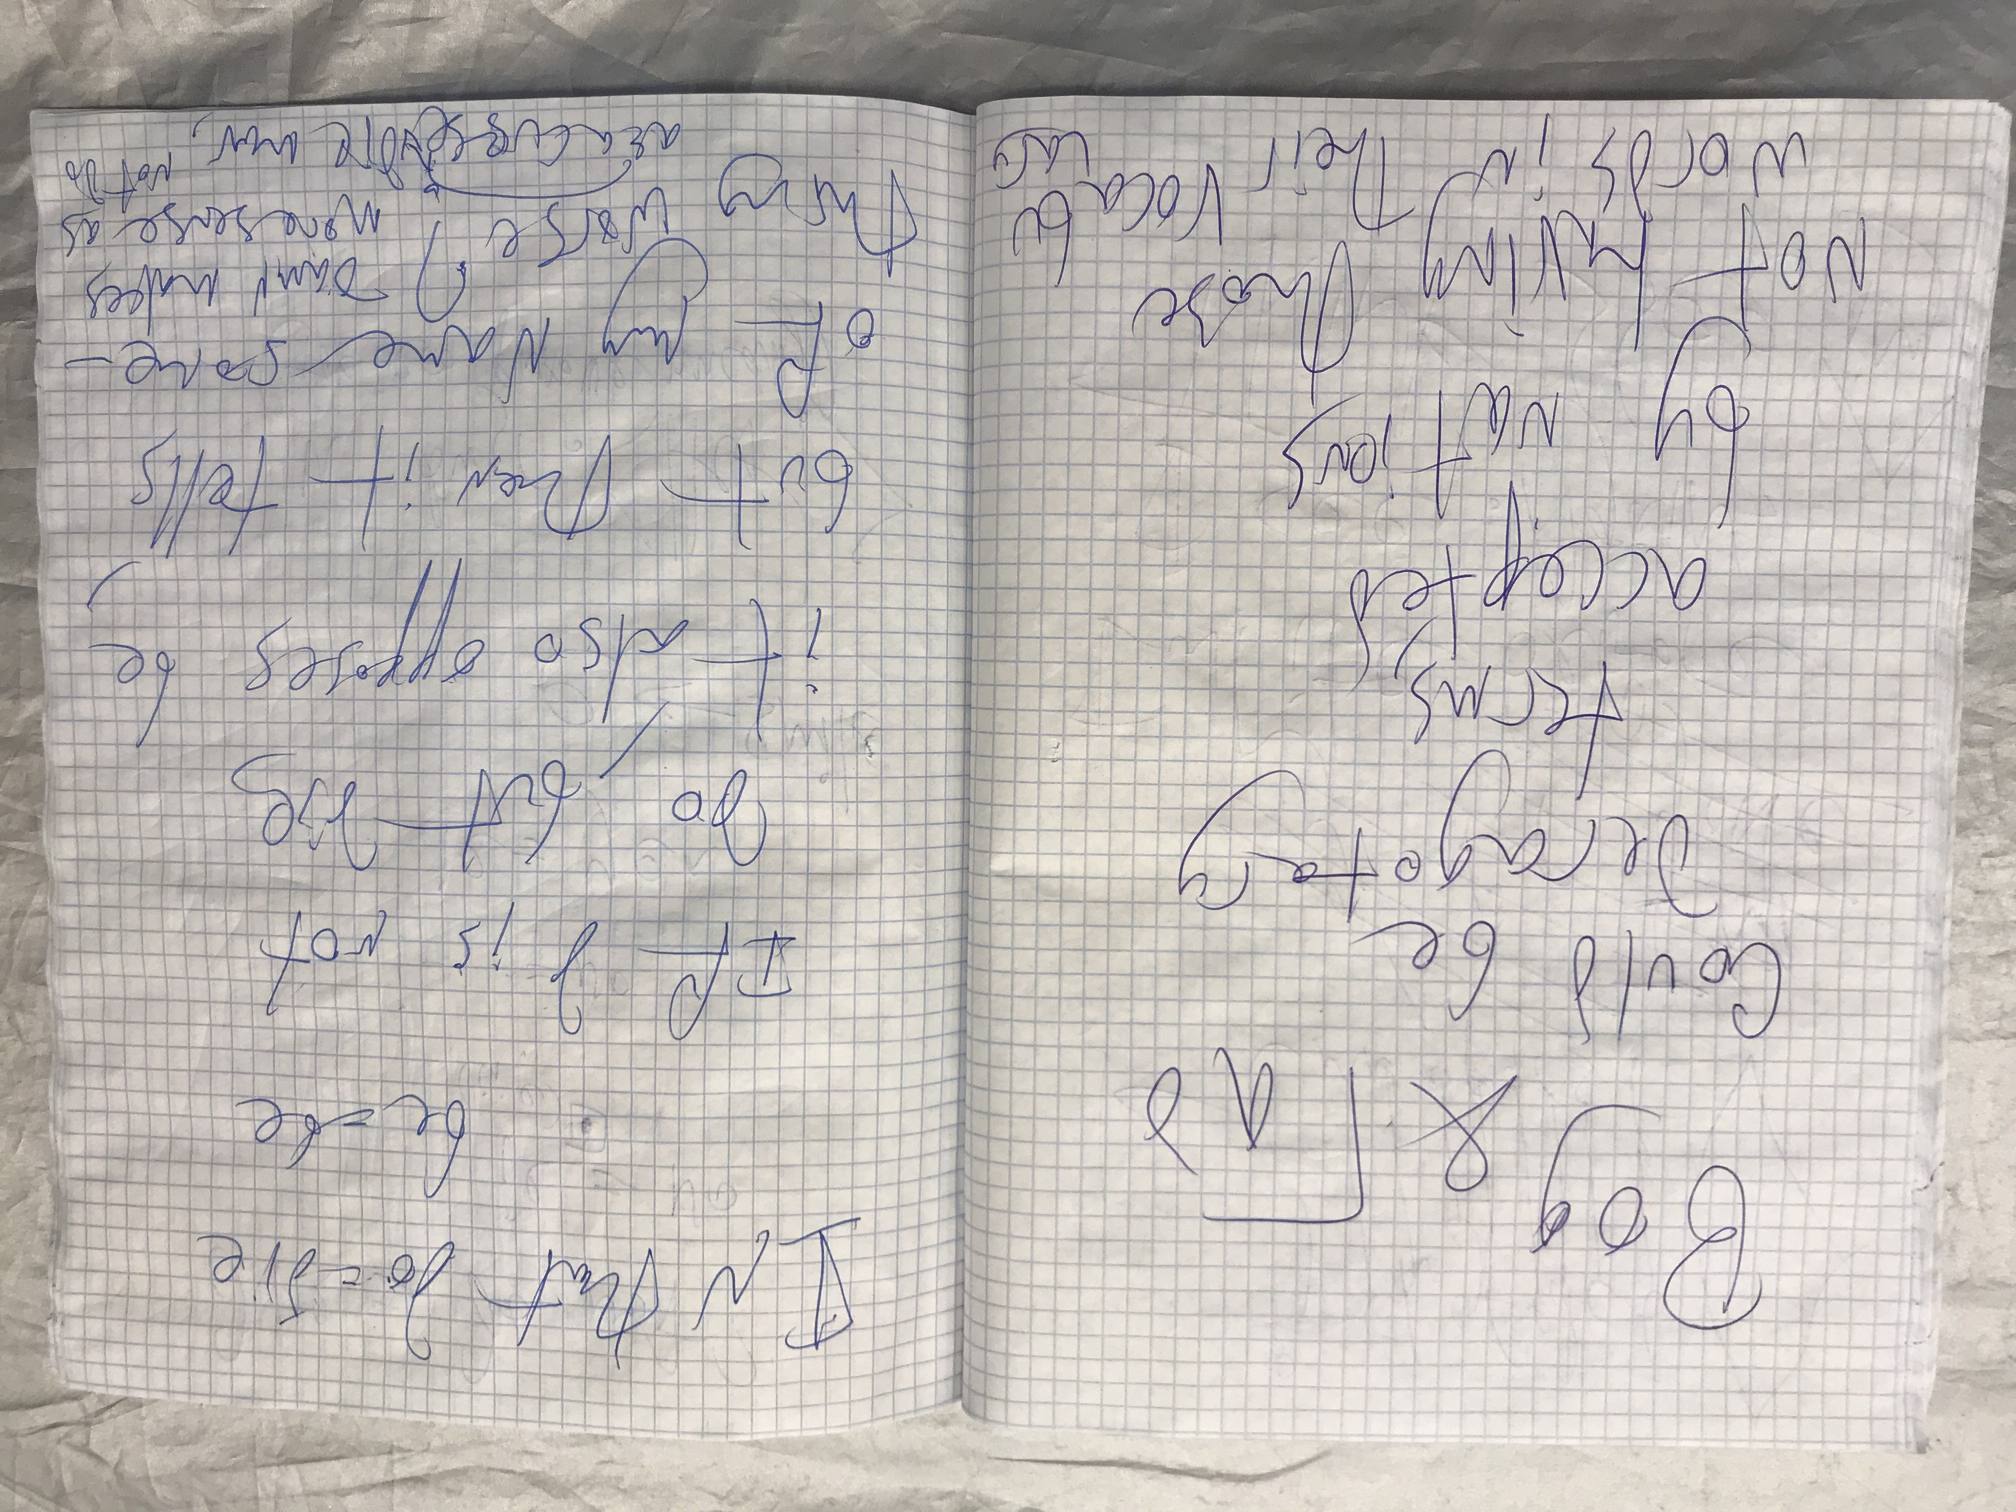 Bog & Гad
could be
derogotary
terms
accepted
by nations
not having those
words in their vocabu
lary
In that go = die
be = be
If g is not
go but
it also opposes be,
but then it tells
of my name some-
thing worse?
makes
more sense as
not do